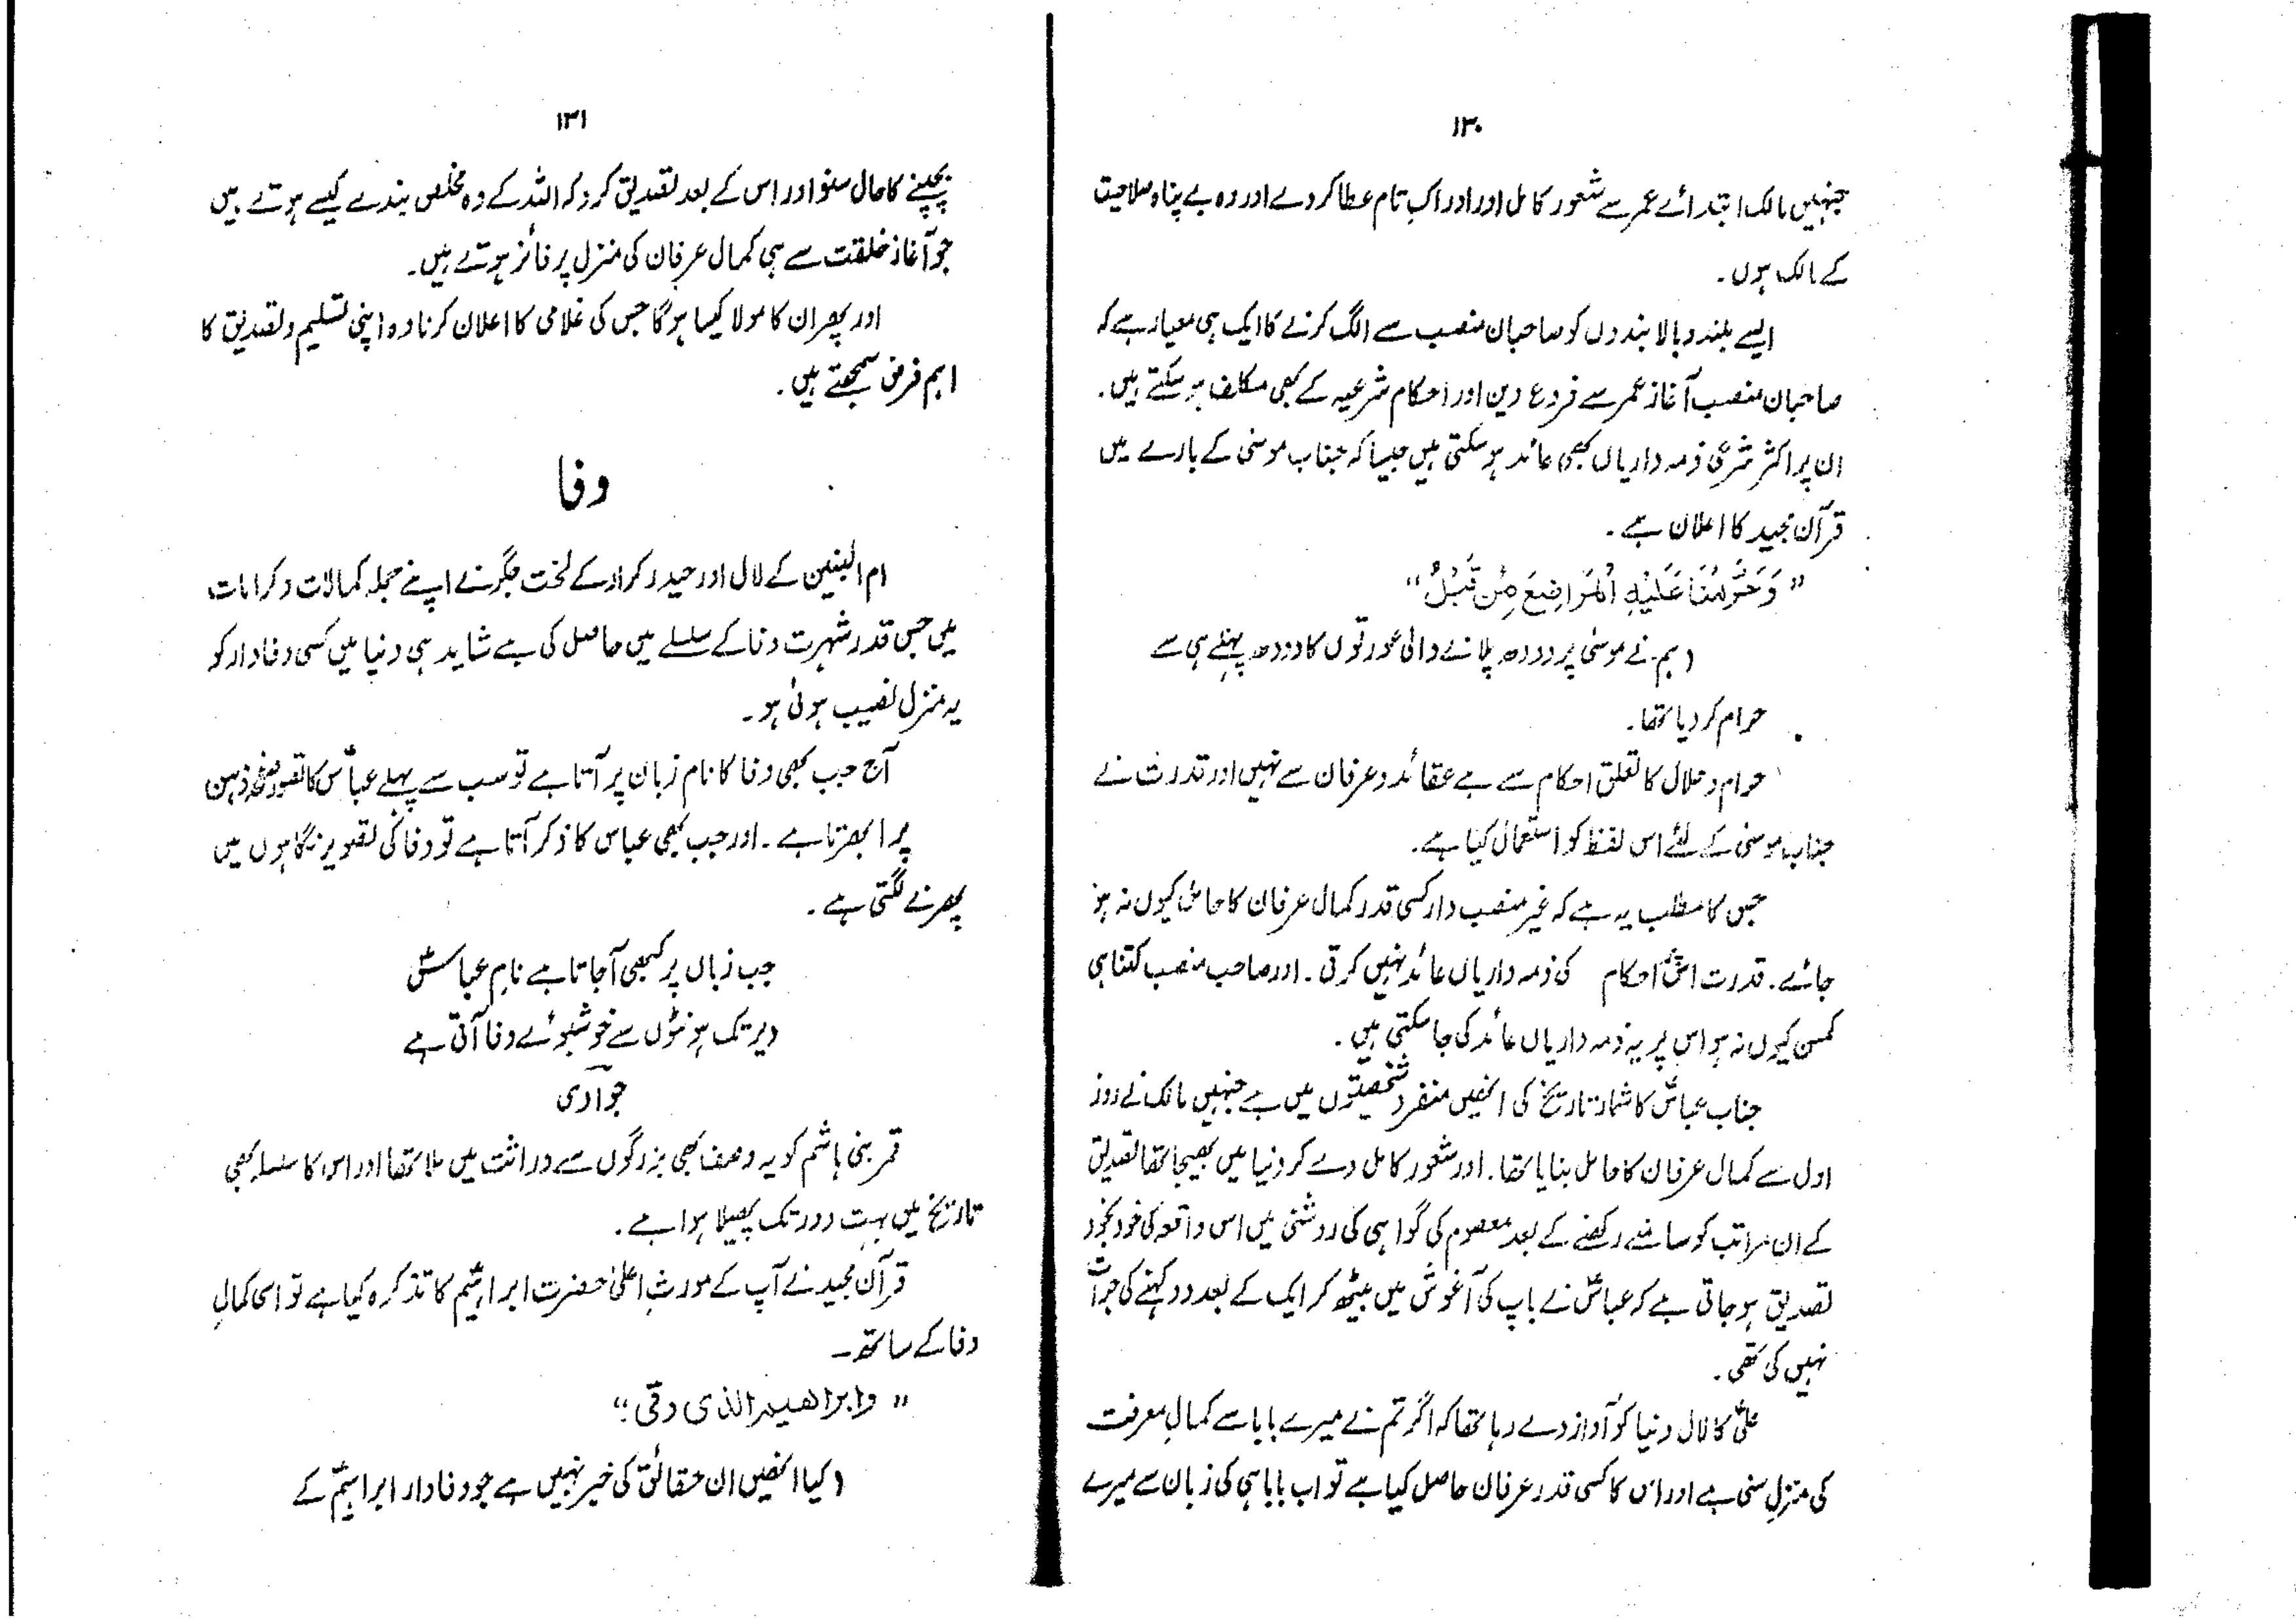 ۱۳۰
جنہیں مالک ابتدائے عمر سے شعور کامل اور ادراک تام عطا کر دے اور وہ بے پناہ صلاحیت
کے مالک ہوں۔
ایسے بلند و بالا بندوں کو صاحبان منصب سے الگ کرنے کا ایک ہی معیار ہے کہ
صاحبان منصب آغاز عمر سے فروع دین اور احکام شرعیہ کے بھی مکلف ہو سکتے ہیں۔
ان پر اکثر شرعی ذمہ داریاں بھی عائد ہو سکتی ہیں جیسا کہ جناب موسیٰ کے بارے میں
قرآن مجید کا اعلان ہے۔
"وَحَرَّمْنَا عَلَيْهِ الْمَرَاضِعَ مِنْ قَبْلُ"
(ہم نے موسیٰ پر دودھ پلانے والی عورتوں کا دودھ پہلے ہی سے
حرام کر دیا تھا۔
حرام و حلال کا تعلق احکام سے ہے عقائد و عرفان سے نہیں اور قدرت نے
جناب موسیٰ کے لئے اس لفظ کو استعمال کیا ہے۔
جس کا مطلب یہ ہے کہ غیر منصب دار کسی قدر کمال عرفان کا حامل کیوں نہ ہو
جائے۔ قدرت اس پر احکام کی ذمہ داریاں عائد نہیں کرتی۔ اور صاحب منصب کتنا ہی
کمسن کیوں نہ ہو اس پر یہ ذمہ داریاں عائد کی جا سکتی ہیں۔
جناب عباسؑ کا شمار تاریخ کی انھیں منفرد شخصیتوں میں ہے جنہیں مالک نے روز
اول سے کمال عرفان کا حامل بنایا تھا۔ اور شعور کامل دے کر دنیا میں بھیجا تھا تصدیق
کے ان مراتب کو سامنے رکھنے کے بعد معصوم کی گواہی کی روشنی میں اس واقعہ کی خود بخود
تصدیق ہو جاتی ہے کہ عباسؑ نے باپ کی آغوش میں بیٹھ کر ایک کے بعد دو کہنے کی جرأت
نہیں کی تھی۔
علیؑ کا لال دنیا کو آواز دے رہا تھا کہ اگر تم نے میرے بابا سے کمالِ معرفت
کی منزل سنی ہے اور اس کا کسی قدر عرفان حاصل کیا ہے تو اب بابا ہی کی زبان سے میرے
۱۳۱
بچپنے کا حال سنو اور اس کے بعد تصدیق کرو کہ اللہ کے وہ مخلص بندے کیسے ہوتے ہیں
جو آغاز خلقت سے ہی کمال عرفان کی منزل پر فائز ہوتے ہیں۔
اور پھر ان کا مولا کیسا ہوگا جس کی غلامی کا اعلان کرنا وہ اپنی تسلیم و تصدیق کا
اہم فرض سمجھتے ہیں۔
وفا
ام البنین کے لال اور حیدر کرار کے لخت جگر نے اپنے جملہ کمالات و کرامات
میں جس قدر شہرت وفا کے سلسلے میں حاصل کی ہے شاید ہی دنیا میں کسی وفادار کو
یہ منزل نصیب ہوئی ہو۔
آج جب بھی وفا کا نام زبان پر آتا ہے تو سب سے پہلے عباسؑ کا تصور صفحۂ ذہن
پر ابھرتا ہے۔ اور جب بھی عباس کا ذکر آتا ہے تو وفا کی تصویر نگاہوں میں
پھرنے لگتی ہے۔
جب زباں پر کبھی آ جاتا ہے نامِ عباسؑ
دیر تک ہونٹوں سے خوشبوئے وفا آتی ہے
جوادی
قمر بنی ہاشم کو یہ وصف بھی بزرگوں سے وراثت میں ملا تھا اور اس کا سلسلہ بھی
تاریخ میں بہت دور تک پھیلا ہوا ہے۔
قرآن مجید نے آپ کے مورثِ اعلیٰ حضرت ابراہیمؑ کا تذکرہ کیا ہے تو اسی کمالِ
وفا کے ساتھ۔
"وابراھیم الذی وفّی"
(کیا انھیں ان حقائق کی خبر نہیں ہے جو وفادار ابراہیمؑ کے